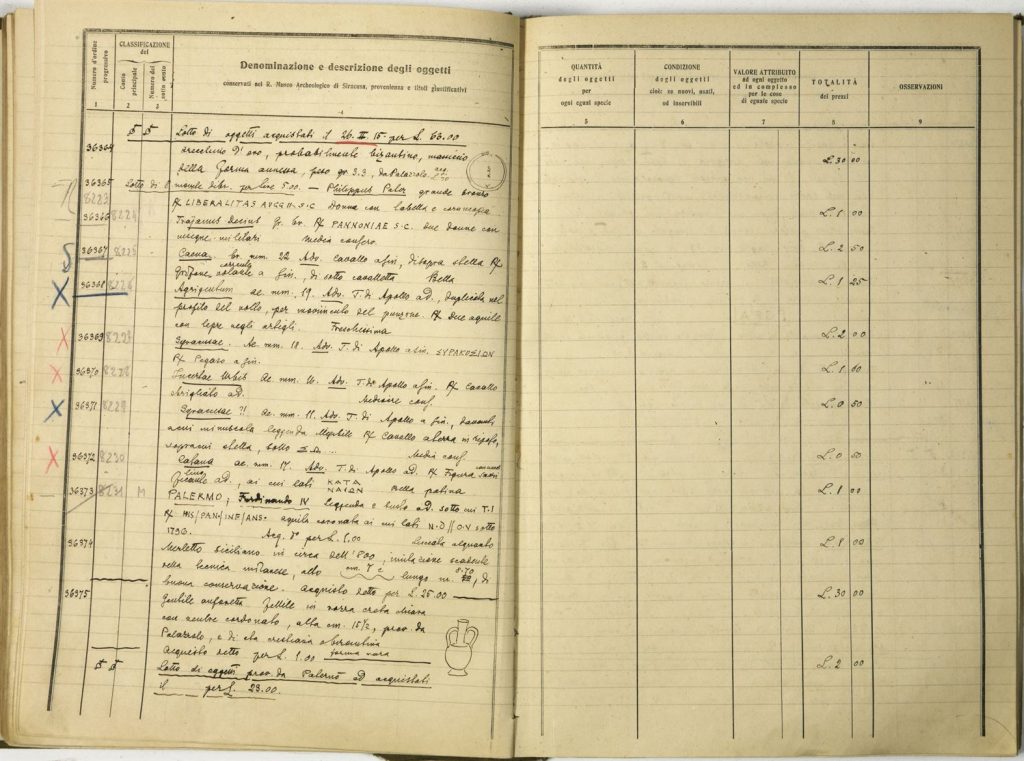 Numero d'ordine progressivo
CLASSIFICAZIONE
del
Conto principale
Numero del sotto conto
Denominazione e descrizione degli oggetti
conservati nel R. Museo Archeologico di Siracusa, provenienza e titoli giustificativi
1 2 3 4
5 5 Lotto di oggetti acquistati il 26. II. 15 per L. 65.00
36364 orecchino d'oro, probabilmente bizantino, massiccio
della forma annessa, peso gr. 3.3, da Palazzolo
36365 Lotto di 8 monete per lire 5.00. — Philippus Pater grande bronzo
8223 R/ LIBERALITAS AVGG II S.C Donna con tabella e cornucopia
36366 8224 Trajanus Decius Gr. br. R/ PANNONIAE S.C. due donne con
insegne militari Media conserv.
36367 8225 br. mm. 22 Adv. Cavallo a sin, disopra stella R/
Grifone a sin., di sotto cavalletta Bella
36368 8226 Agrigentum ae. mm. 19. Adv. T. di Apollo ad., duplicata nel
profilo del collo, per movimento del punzone. R/ due aquile
con lepre negli artigli. Freschissima
36369 8227 Syracusae. Ae. mm. 18. Adv. T. di Apollo a sin. ΣΥΡΑΚΟΣΙΩΝ
R/ Pegaso a sin.
36370 8228 Incertae Urbis Ae. mm. 16. Adv. T. di Apollo a sin. R/ Cavallo
ad. Mediocre cons.
36371 8229 Syracusae ?! Ae. mm. 11. Adv. T. di Apollo a sin., davanti
minuscola leggenda R/ Cavallo
sopra stella, sotto Media cons.
36372 8230 Catana ae. mm. 17. Adv. T. di Apollo ad. R/ Figura
ad., ai cui lati ΚΑΤΑ
ΝΑΙΩΝ Bella patina
36373 8231 M PALERMO, Ferdinando IV Leggenda e busto ad. sotto cui T.I
R/ HIS/PAN/INF/ANS. aquila coronata ai cui lati N.D // O.V sotto
1796. Acq. per L. 1.00
36374 Merletto siciliano in circa dell'800, imitazione
della tecnica milanese, alto cm. 7 e lungo m. 8.70, di
buona conservazione. Acquisto detto per L. 25.00
36375 Gentile anforetta fittile in rozza creta chiara
con ventre cordonato, alta cm. 15½, prov. da
Palazzolo, e di età cristiana o bizantina
Acquisto detto per L. 1.00 forma rara
5 5 Lotto di oggetti prov. da Palermo ed acquistati
il per L. 29.00.
QUANTITÀ
degli oggetti
per
ogni eguale specie
CONDIZIONE
degli oggetti
cioè: se nuovi, usati,
od inservibili
VALORE ATTRIBUITO
ad ogni oggetto
ed in complesso
per le cose
di eguale specie
TOTALITÀ
dei prezzi
OSSERVAZIONI
5 6 7 8 9
L. 30 00
L. 1 00
L. 2 50
L. 1 25
L. 2 00
L. 1 00
L. 0 50
L. 0 50
L. 1 00
L. 1 00
L. 30 00
L. 2 00